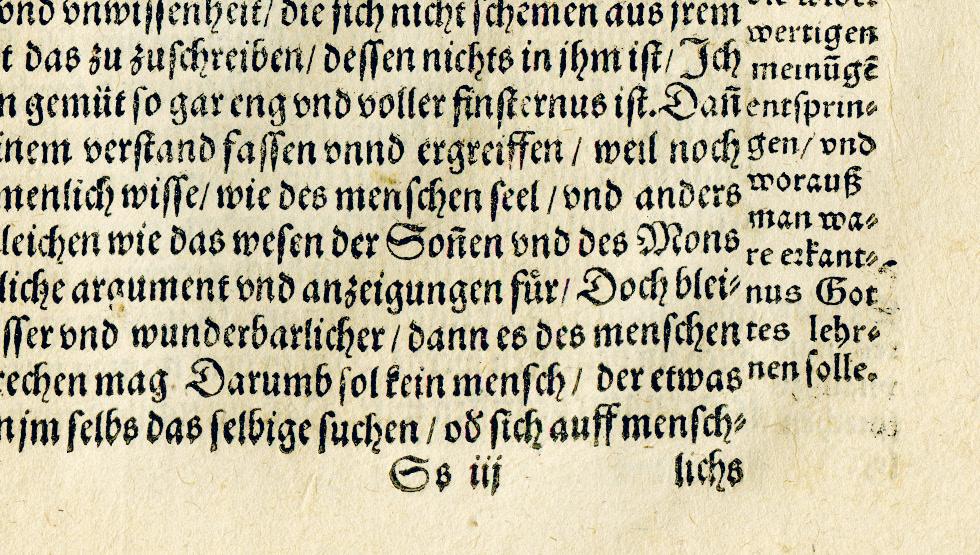 vnd vnwissenheit/ die sich nicht schemen aus jrem
t das zu zuschreiben/ dessen nichts in jhm ist/ Ich
n gemüt so gar eng vnd voller finsternus ist. Dañ
inem verstand fassen vnnd ergreiffen / weil noch
menlich wisse/ wie des menschen seel / vnd anders
leichen wie das wesen der Soñen vnd des Mons
liche argument vnd anzeigungen für/ Doch blei⸗
sser vnd wunderbarlicher / dann es des menschen
rechen mag Darumb sol kein mensch / der etwas
n jm selbs das selbige suchen / od̕ sich auff mensch⸗
Ss iij
lichs
wertigen
meinũgẽ
entsprin⸗
gen/ vnd
worauß
man wa⸗
re erkant⸗
nus Got
tes lehr⸗
nen solle.